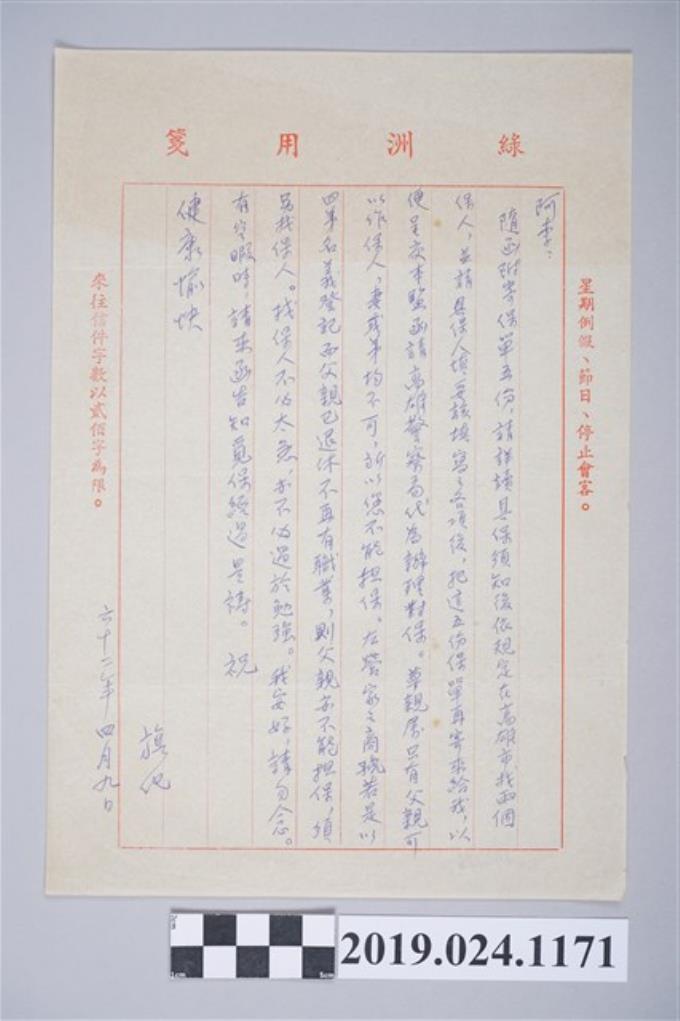 綠洲用箋
星期例假、節日、停止會客。
阿李：
隨函附寄保單五份，請詳讀具保須知後依規定在高雄市找兩個
保人，並請具保人填妥該填寫之各項後，把這五份保單再寄來給我，以
便呈交本監函請高雄警察局代為辦理對保。尊親屬只有父親可
以作保人，妻或弟均不可，所以您不能担保。在營家之商號若是以
四弟名義登記而父親已退休不再有職業，則父親亦不能担保，須
另找保人。找保人不必太急，亦不必過於勉強。我安好，請勿念。
有空暇時，請來函告知覓保經過是禱。祝
健康愉快
旗化
六十二年四月九日
來往信件字數以貳佰字為限。
2019.024.1171
1cm
5cm